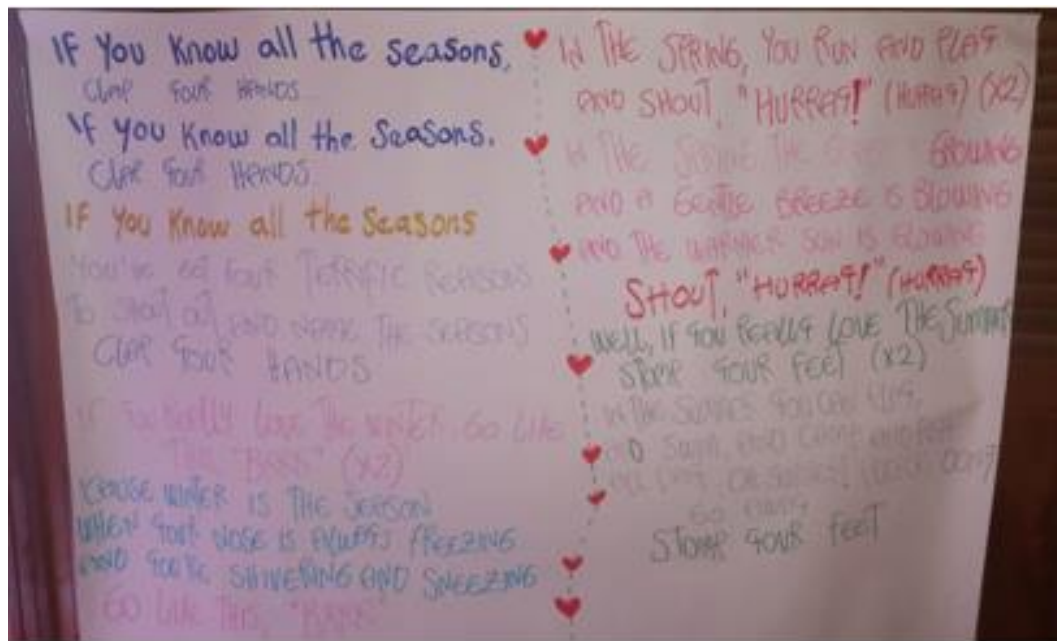 If You Know all the seasons,
CLAP YOUR HANDS
If you Know all the Seasons.
CLAP YOUR HANDS
If You Know all the Seasons
YOU'VE GOT FOUR TERRIFIC REASONS
TO SHOUT OUT AND NAME THE SEASONS
CLAP YOUR HANDS
IF YOU REALLY LOVE THE WINTER, GO LIKE
THIS "BRRR" (X2)
WINTER IS THE SEASON
WHEN YOUR NOSE IS ALWAYS FREEZING
AND YOU'RE SHIVERING AND SNEEZING
GO LIKE THIS, "BRRR"
IN THE SPRING, YOU RUN AND PLAY
AND SHOUT, "HURRAY!" (HURRAY) (X2)
IN THE SPRING THE GROWING
AND A GENTLE BREEZE IS BLOWING
AND THE WARMER SUN IS GLOWING
SHOUT, "HURRAY!" (HURRAY)
WELL, IF YOU REALLY LOVE THE SUMMER
STOMP YOUR FEET (X2)
IN THE SUMMER YOU CAN
SWIM, AND CAMP AND
STOMP YOUR FEET